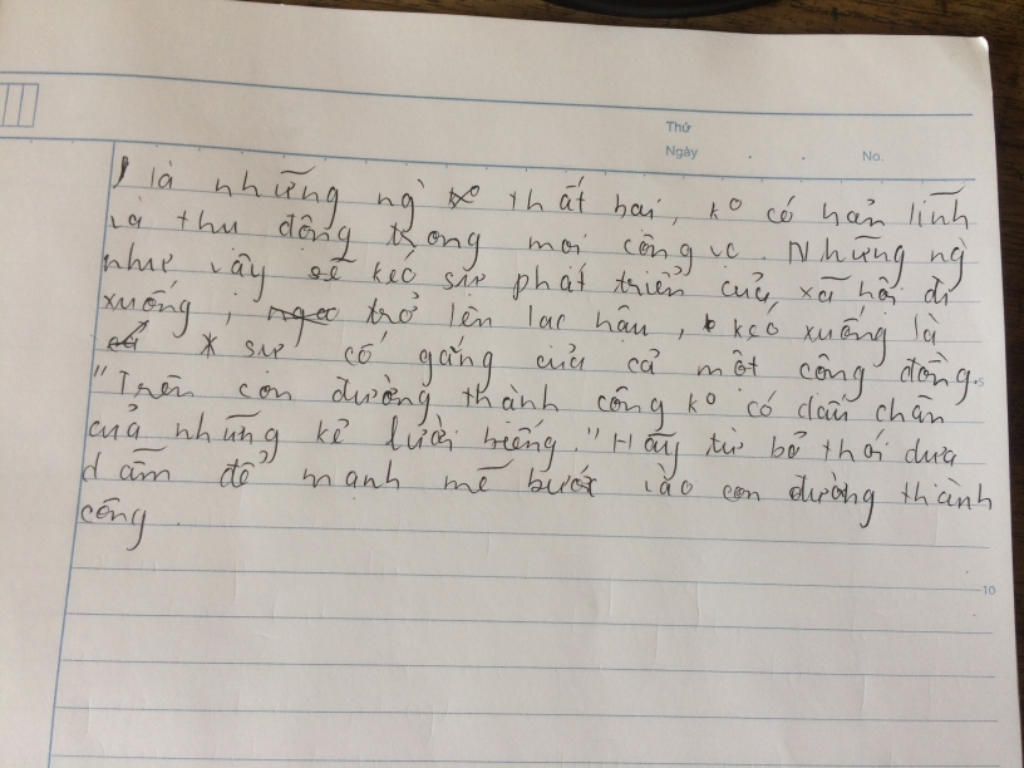 Thứ
Ngày . . No.
, là những ng` thất bại, kº có bản lĩnh
và thụ động trong mọi công vc. Những ng`
như vậy sẽ kéo sự phát triển của xã hội đi
xuống, trở lên lạc hậu, kéo xuống là
* sự cố gắng của cả một cộng đồng. 5
"Trên con đường thành công kº có dấu chân
của những kẻ lười biếng." Hãy từ bỏ thói dựa
dẫm để mạnh mẽ bước vào con đường thành
công.
10